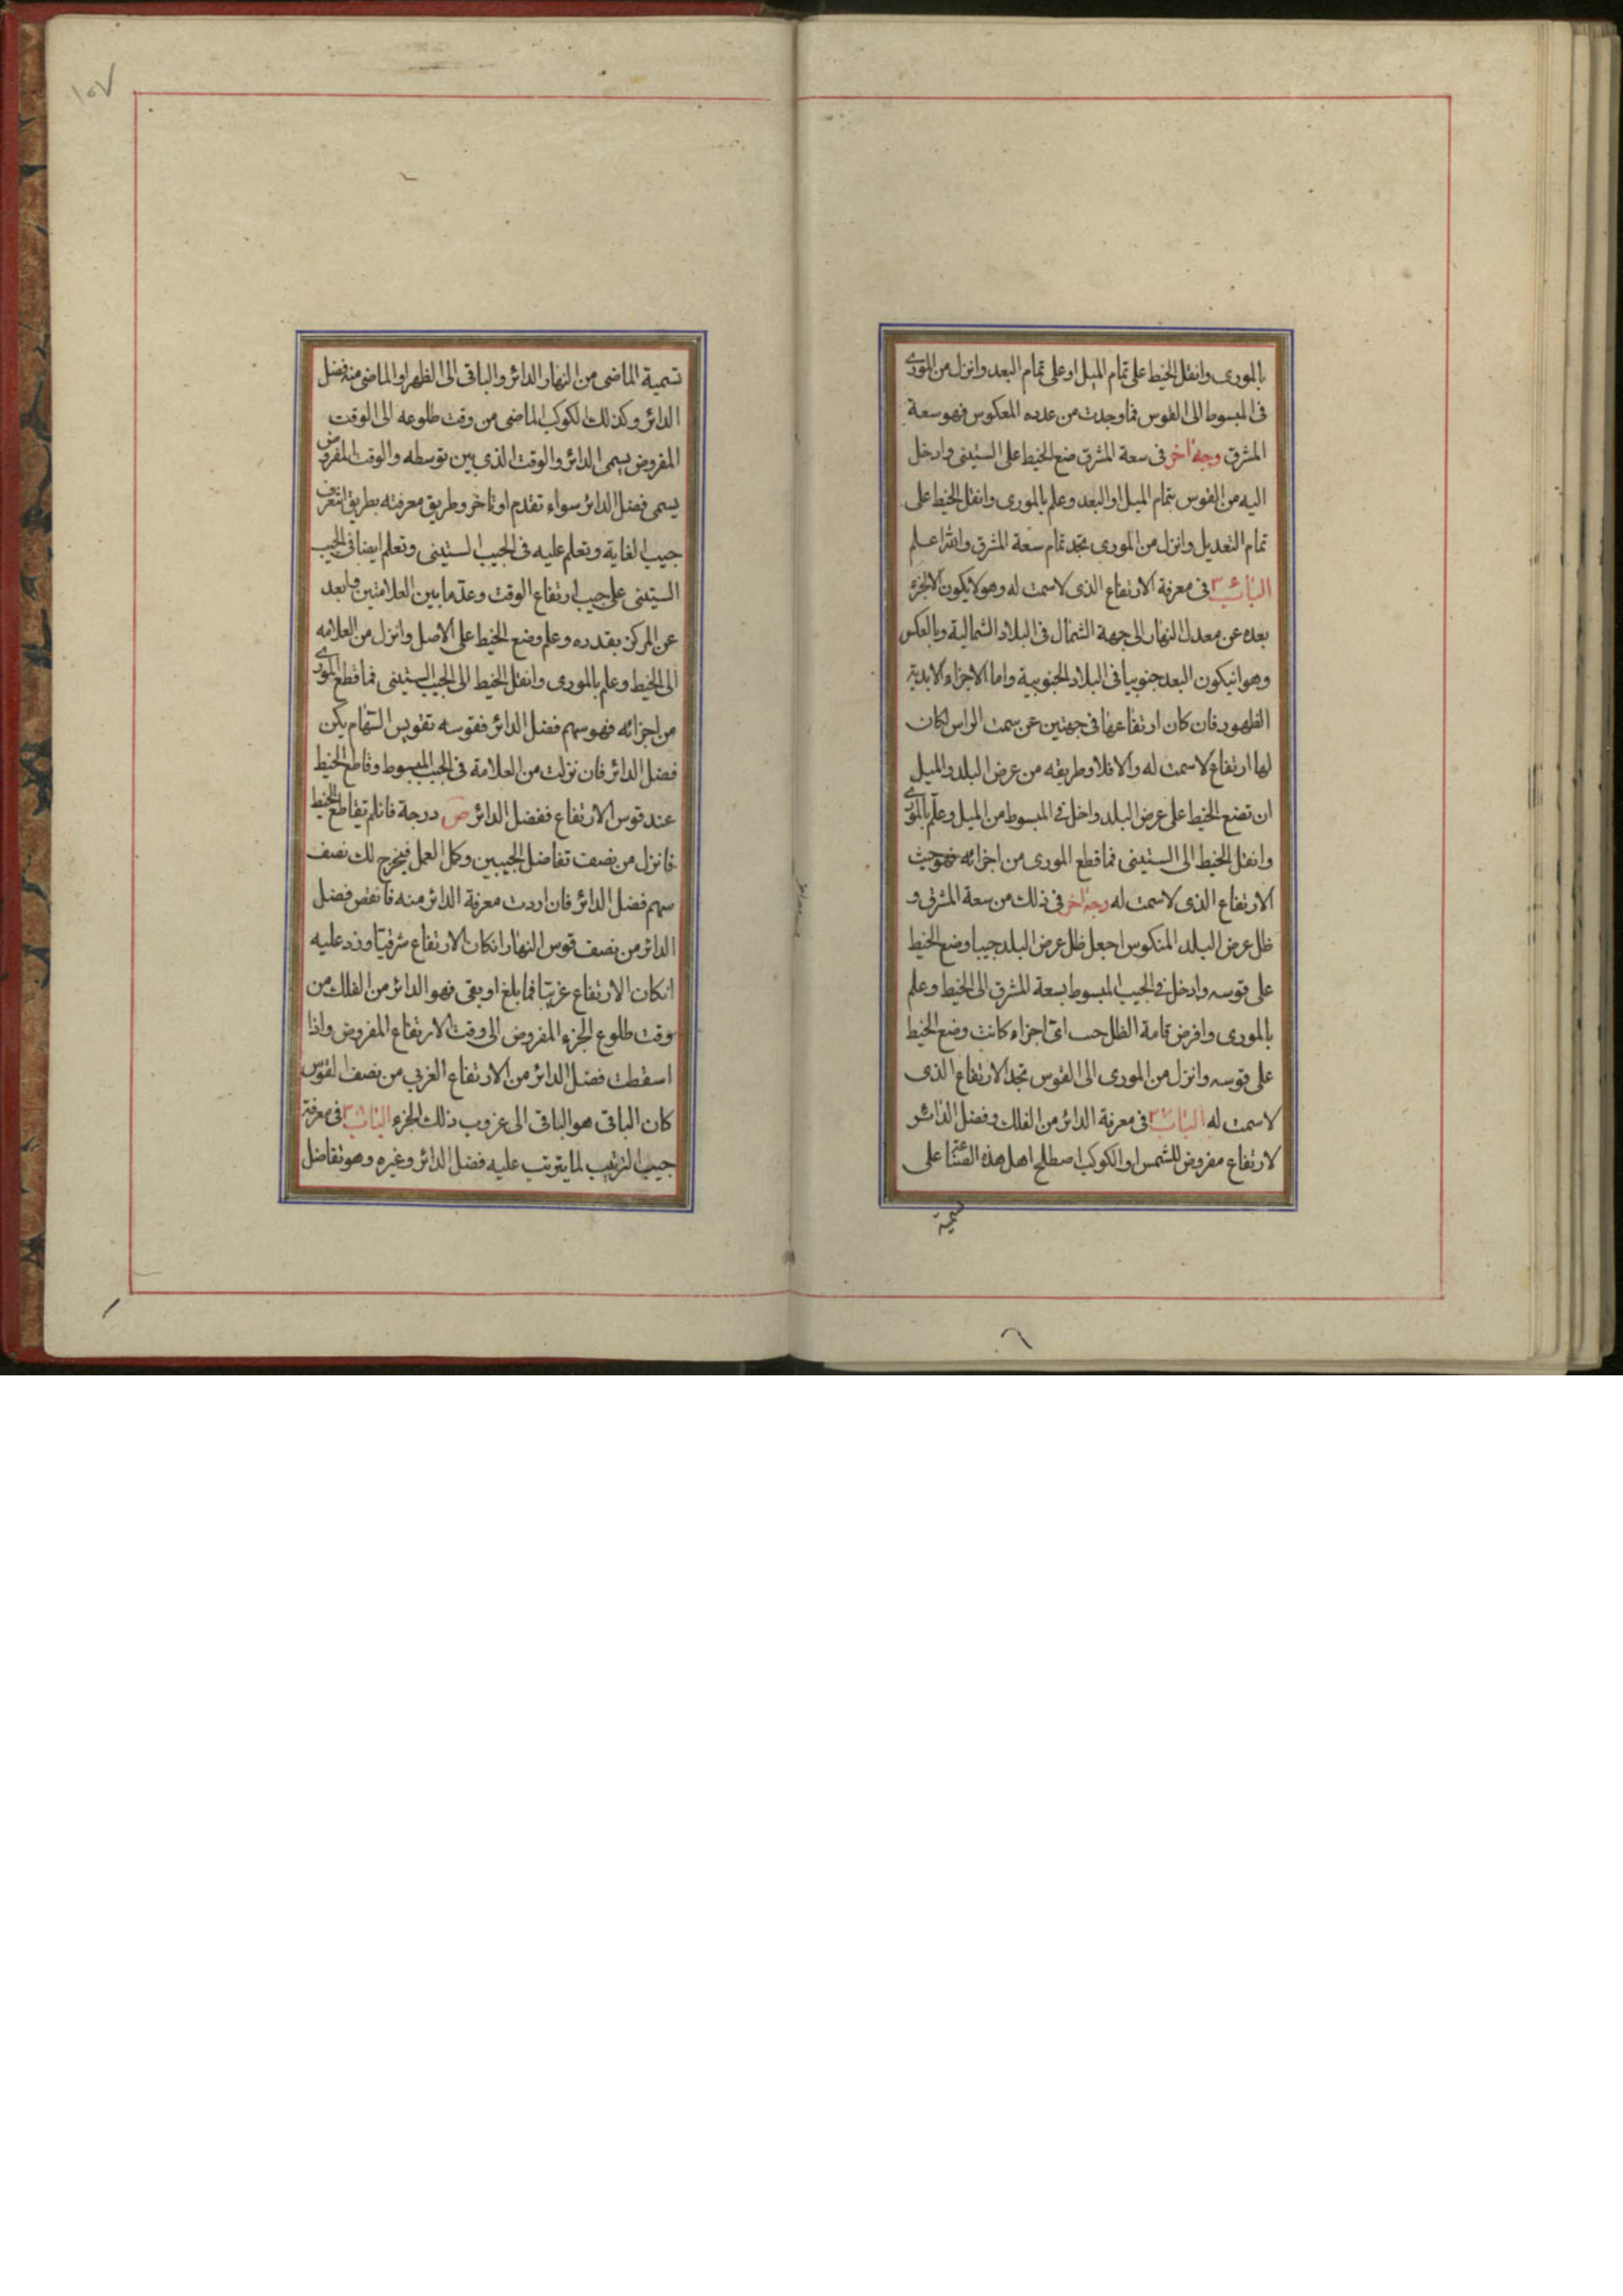 بالمورى وانقل الخيط على تمام الميل او على تمام البعد وانزل من المورى
فى المبسوط الى القوس فما وجدت من عدده المعكوس فهو سعة
المشرق وجه اخر فى سعة المشرق ضع الخيط على الستينى وادخل
اليه من القوس بتمام الميل او البعد وعلم بالمورى وانقل الخيط على
تمام التعديل وانزل من المورى تجد تمام سعة المشرق والله اعلم
الباب فى معرفة الارتفاع الذى لا سمت له وهو لا يكون الا لجزء
بعده عن معدل النهار الى جهة الشمال فى البلاد الشمالية وبالعكس
وهو انيكون البعد جنوبيا فى البلاد الجنوبية واما الاجزاء الابدية
الظهور فان كان ارتفاعها فى جهتين عن سمت الراس كان
لها ارتفاع لا سمت له والا فلا وطريقه من عرض البلد والميل
ان تضع الخيط على عرض البلد وادخل فى المبسوط من الميل وعلم بالمورى
وانقل الخيط الى الستينى فما قطع المورى من اجزائه فهو جيب
الارتفاع الذى لا سمت له وجه اخر فى ذلك من سعة المشرق و
ظل عرض البلد المنكوس اجعل ظل عرض البلد جيبا وضع الخيط
على قوسه وادخل فى الجيب المبسوط بسعة المشرق الى الخيط وعلم
بالمورى وافرض قامة الظل حسب اى اجزاء كانت وضع الخيط
على قوسه وانزل من المورى الى القوس تجد الارتفاع الذى
لا سمت له الباب فى معرفة الدائر من الفلك وفضل الدائر
لارتفاع مفروض للشمس او الكوكب اصطلح اهل هذه الصناعة على
تسمية
١٥٧
تسمية الماضى من النهار الدائر والباقى الى الظهر او الماضى منه فضل
الدائر وكذلك الكوكب الماضى من وقت طلوعه الى الوقت
المفروض يسمى الدائر والوقت الذى بين توسطه والوقت المفروض
يسمى فضل الدائر سواء تقدم او تاخر وطريق معرفته بطريق ان تعرف
جيب الغاية وتعلم عليه فى الجيب الستينى وتعلم ايضا فى الجيب
الستينى على جيب ارتفاع الوقت وعد ما بين العلامتين فابعد
عن المركز بقدره وعلم وضع الخيط على الاصل وانزل من العلامه
الى الخيط وعلم بالمورى وانقل الخيط الى الجيب الستينى فما قطع المورى
من اجزائه فهو سهم فضل الدائر فقوسه تقويس السهام يكن
فضل الدائر فان نزلت من العلامة فى الجيب المبسوط وقاطع الخيط
عند قوس الارتفاع ففضل الدائر ص درجة فانلم يقاطع الخيط
فانزل من نصف تفاضل الجيبين وكمل العمل فيخرج لك نصف
سهم فضل الدائر فان اردت معرفة الدائر منه فانقص فضل
الدائر من نصف قوس النهار انكان الارتفاع شرقيا وزد عليه
انكان الارتفاع غربيا فما بلغ او بقى فهو الدائر من الفلك من
وقت طلوع الجزء المفروض الى وقت الارتفاع المفروض واذا
اسقطت فضل الدائر من الارتفاع الغربي من نصف القوس
كان الباقى هو الباقى الى غروب ذلك الجزء الباب فى معرفة
جيب الترتيب لما يترتب عليه فضل الدائر وغيره وهو تفاضل